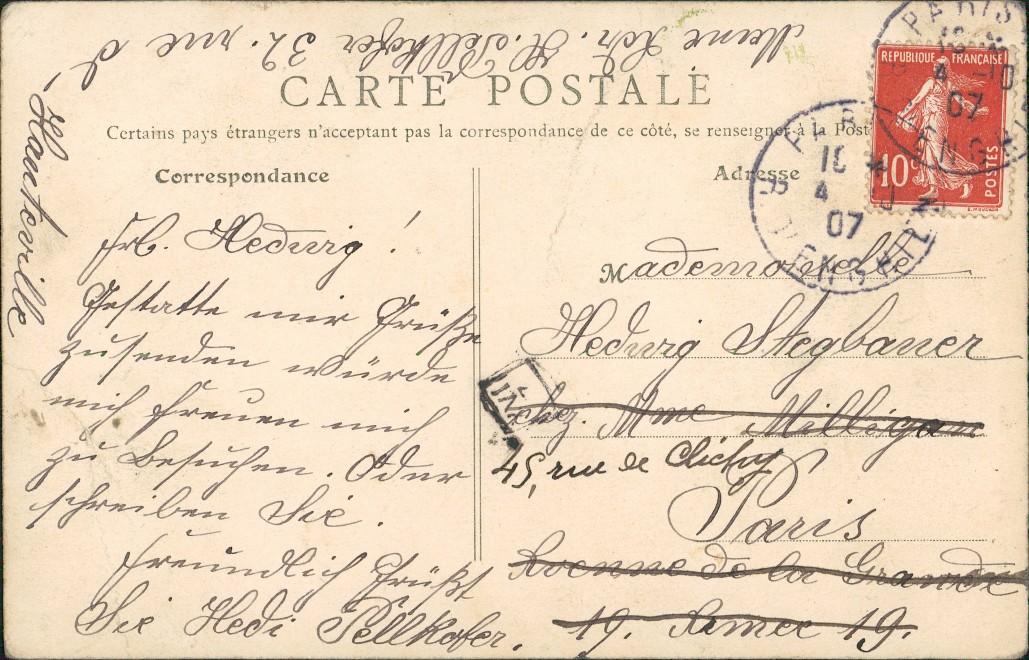 Meine Adr. H. Pellkofer 32. rue d'
Hauteville
CARTE POSTALE
Certains pays étrangers n'acceptant pas la correspondance de ce côté, se renseigner à la Post
Correspondance
Adresse
Frl. Hedwig!
Gestatte mir Grüße
zusenden würde
mich freuen mich
zu besuchen. Oder
schreiben Sie.
Freundlich Grüßt
Sie Hedi Pellkofer.
Mademoiselle
Hedwig Stegbauer
chez. Mme Milligan
45, rue de Clichy
Paris
Avenue de la Grande
19. Armee 19.
REPUBLIQUE FRANÇAISE
10c
POSTES
PARIS
10
4 -10
07
PARIS
10
4 10
07